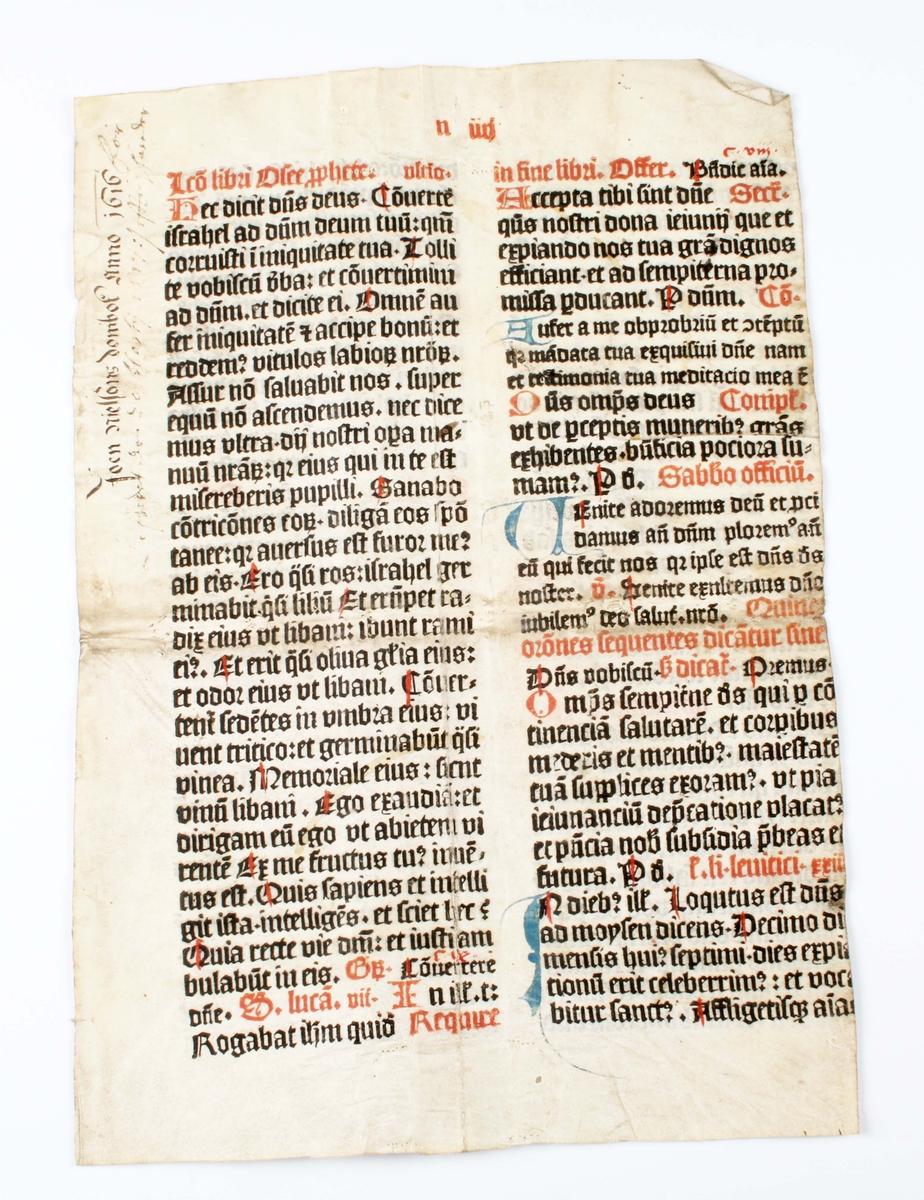 n iiij
Lcō libri Osee ꝓphete. vltīo.
Hec dicit dn̄s deus. Cōuerte
israhel ad dn̄m deum tuū: qm̄
corruisti ī iniquitate tua. Tolli
te vobiscū v̄ba: et cōuertimini
ad dn̄m. et dicite ei. Omnē au
fer iniquitatē ⁊ accipe bonū: et
reddemꝰ vitulos labioꝝ nr̄oꝝ.
Assur nō saluabit nos. super
equū nō ascendemus. nec dice
mus vltra. dij nostri oꝑa ma⸗
nuū nr̄aꝝ: qꝛ eius qui in te est
misereberis pupilli. Sanabo
cōtricōnes eoꝝ. diligā eos spō
tanee: qꝛ auersus est furor meꝰ
ab eis. Ero q̄si ros: israhel ger
minabit q̄si liliū Et erūpet ra⸗
dix eius vt libani: ibunt rami
eiꝰ. Et erit q̄si oliua gl̄ia eius:
et odor eius vt libani. Cōuer⸗
tent̄ sedētes in vmbra eius: vi
uent tritico: et germinabūt q̄si
vinea. Memoriale eius: sicut
vinū libani. Ego exaudiā: et
dirigam eū ego vt abietem vi
rentē Ex me fructus tuꝰ inuē⸗
tus est. Quis sapiens et intelli
git ista. intelligēs. et sciet hec ꝫ
Quia recte vie dn̄i: et iusti am
bulabūt in eis. Gꝝ. Cōuertere
c. ix.
dn̄e. S. lucā. vii. In ill. t:
Rogabat ih̄m quid̄ Require
c. viii.
in fine libri. Offer. Bn̄dic aīa.
Accepta tibi sint dn̄e Secr̄.
qūs nostri dona ieiunij que et
expiando nos tua grā dignos
efficiant. et ad sempiterna pro⸗
missa ꝑducant. P dn̄m. Cō.
Aufer a me obprobriū et ↄtēptū
qꝛ mādata tua exquisiui dn̄e nam
et testimonia tua meditacio mea ē
Qūs omp̄s deus Comp̄l.
vt de ꝑceptis muneribꝰ grās
exhibentes. bn̄ficia pociora su⸗
mamꝰ. P d̄. Sabbō officiū.
Uenite adoremus deū et ꝓci
damus an̄ dn̄m ploremꝰ an̄
eū qui fecit nos qꝛ ipse est dn̄s d̄s
noster. v̄. Uenite exultemus dn̄o
iubilemꝰ deo salut. nr̄o. Quinqꝫ
orōnes sequentes dicātur sine
Dn̄s vobiscū. s̄ dicat̄. Oremus.
Omp̄s sempit̄ne d̄s qui ꝑ cō
tinenciā salutarē. et corꝑibus
mederis et mentibꝰ. maiestatē
tuā supplices exoramꝰ. vt pia
ieiunanciū dep̄catione placatꝰ
et p̄n̄cia nob̄ subsidia p̄beas et
futura. P d̄. l. li. leuitici. xxiii
In diebꝰ ill̄. Loqutus est dn̄s
ad moysen dicens. Decimo di
mensis huiꝰ septimi. dies expia
tionū erit celeberrimꝰ: et voca
bitur sanctꝰ. Affligetisqꝫ aīas
Joen nielsøns dombok Anno 1616